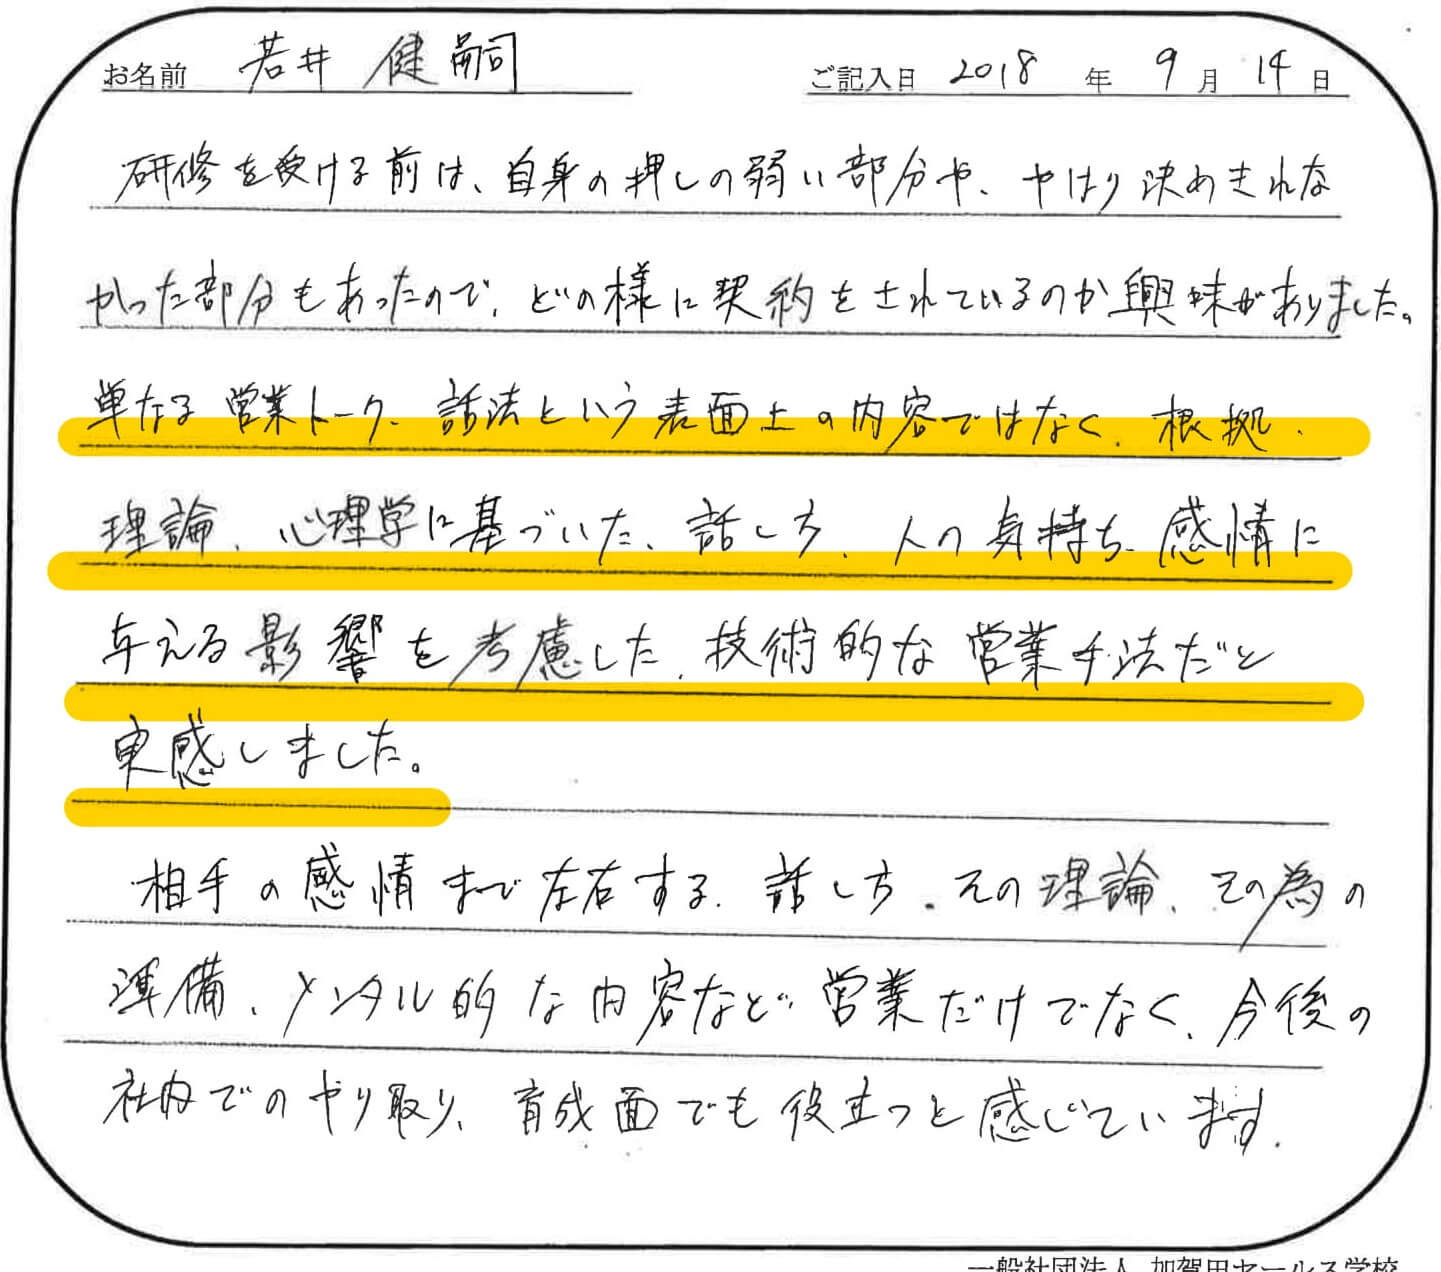 お名前 若井 健嗣 ご記入日 2018 年 9 月 14 日
研修を受ける前は、自身の押しの弱い部分や、やはり決めきれな
かった部分もあったので、どの様に契約をされているのか興味がありました。
単なる営業トーク、話法という表面上の内容ではなく、根拠、
理論、心理学に基づいた、話し方、人の気持ち、感情に
与える影響を考慮した、技術的な営業手法だと
実感しました。
相手の感情まで左右する、話し方、その理論、その為の
準備、メンタル的な内容など、営業だけでなく、今後の
社内でのやり取り、育成面でも役立つと感じています。
一般社団法人 加賀田セールス学校